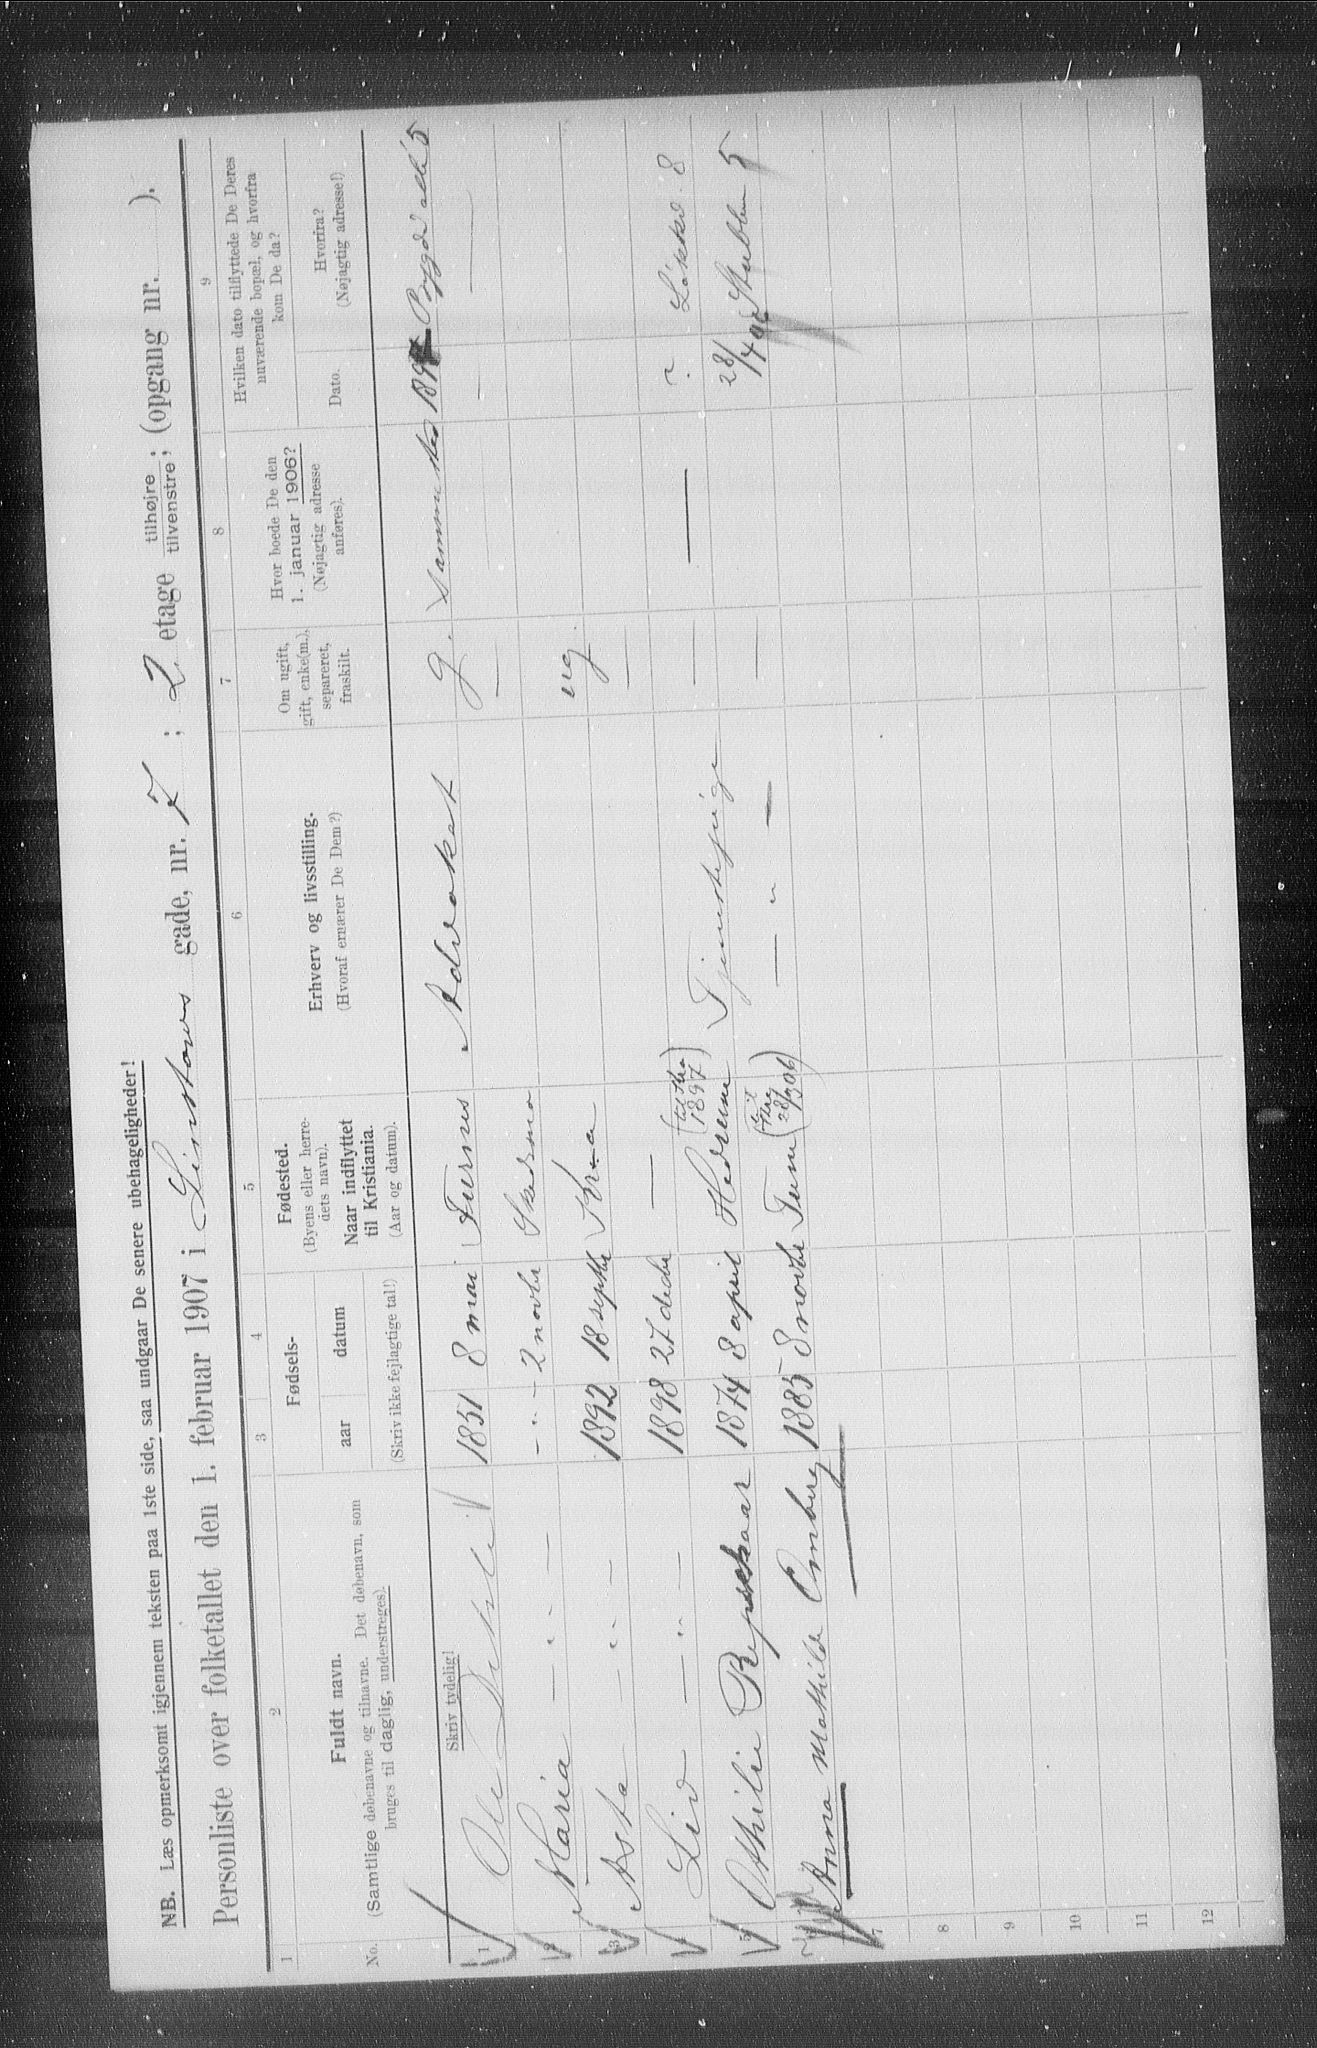 NB. Læs opmerksomt igjennem teksten paa 1ste side, saa undgaar De senere ubehageligheder!
Personliste over folketallet den 1. februar 1907 i Linstows gade, nr. 7; 2 etage tilhøjre, tilvenstre; (opgang nr. ).
1 2 3 4 5 6 7 8 9
No.
Fuldt navn.
(Samtlige døbenavne og tilnavne. Det døbenavn, som
bruges til daglig, understreges).
Fødsels-
aar datum
(Skriv ikke fejlagtige tal!)
Fødested.
(Byens eller herre-
dets navn).
Naar indflyttet
til Kristiania.
(Aar og datum).
Erhverv og livsstilling.
(Hvoraf ernærer De Dem?)
Om ugift,
gift, enke(m.),
separeret,
fraskilt.
Hvor boede De den
1. januar 1906?
(Nøjagtig adresse
anføres).
Hvilken dato tilflyttede De Deres
nuværende bopæl, og hvorfra
kom De da?
Dato.
Hvorfra?
(Nøjagtig adresse!)
Skriv tydelig!
1 Ole 1851 8 mai Furnes Advokat g. Sammested Bygdø allé 5
2 Maria — " — — " — 2 novbr Skedsmo — — — —
3 Asta — " — 1892 18 septbr Kr.a ug.
4 Liv — " — 1898 27 decbr — —
5 Othilie 1874 8 april Hedrum (til Kra 1897) Tjenestepige — — ? Løkkev. 8
6 Anna Mathilde Omberg 1885 8 novbr Tune (til Kra 28/3 06) — " — — 28/4 06 5
7
8
9
10
11
12